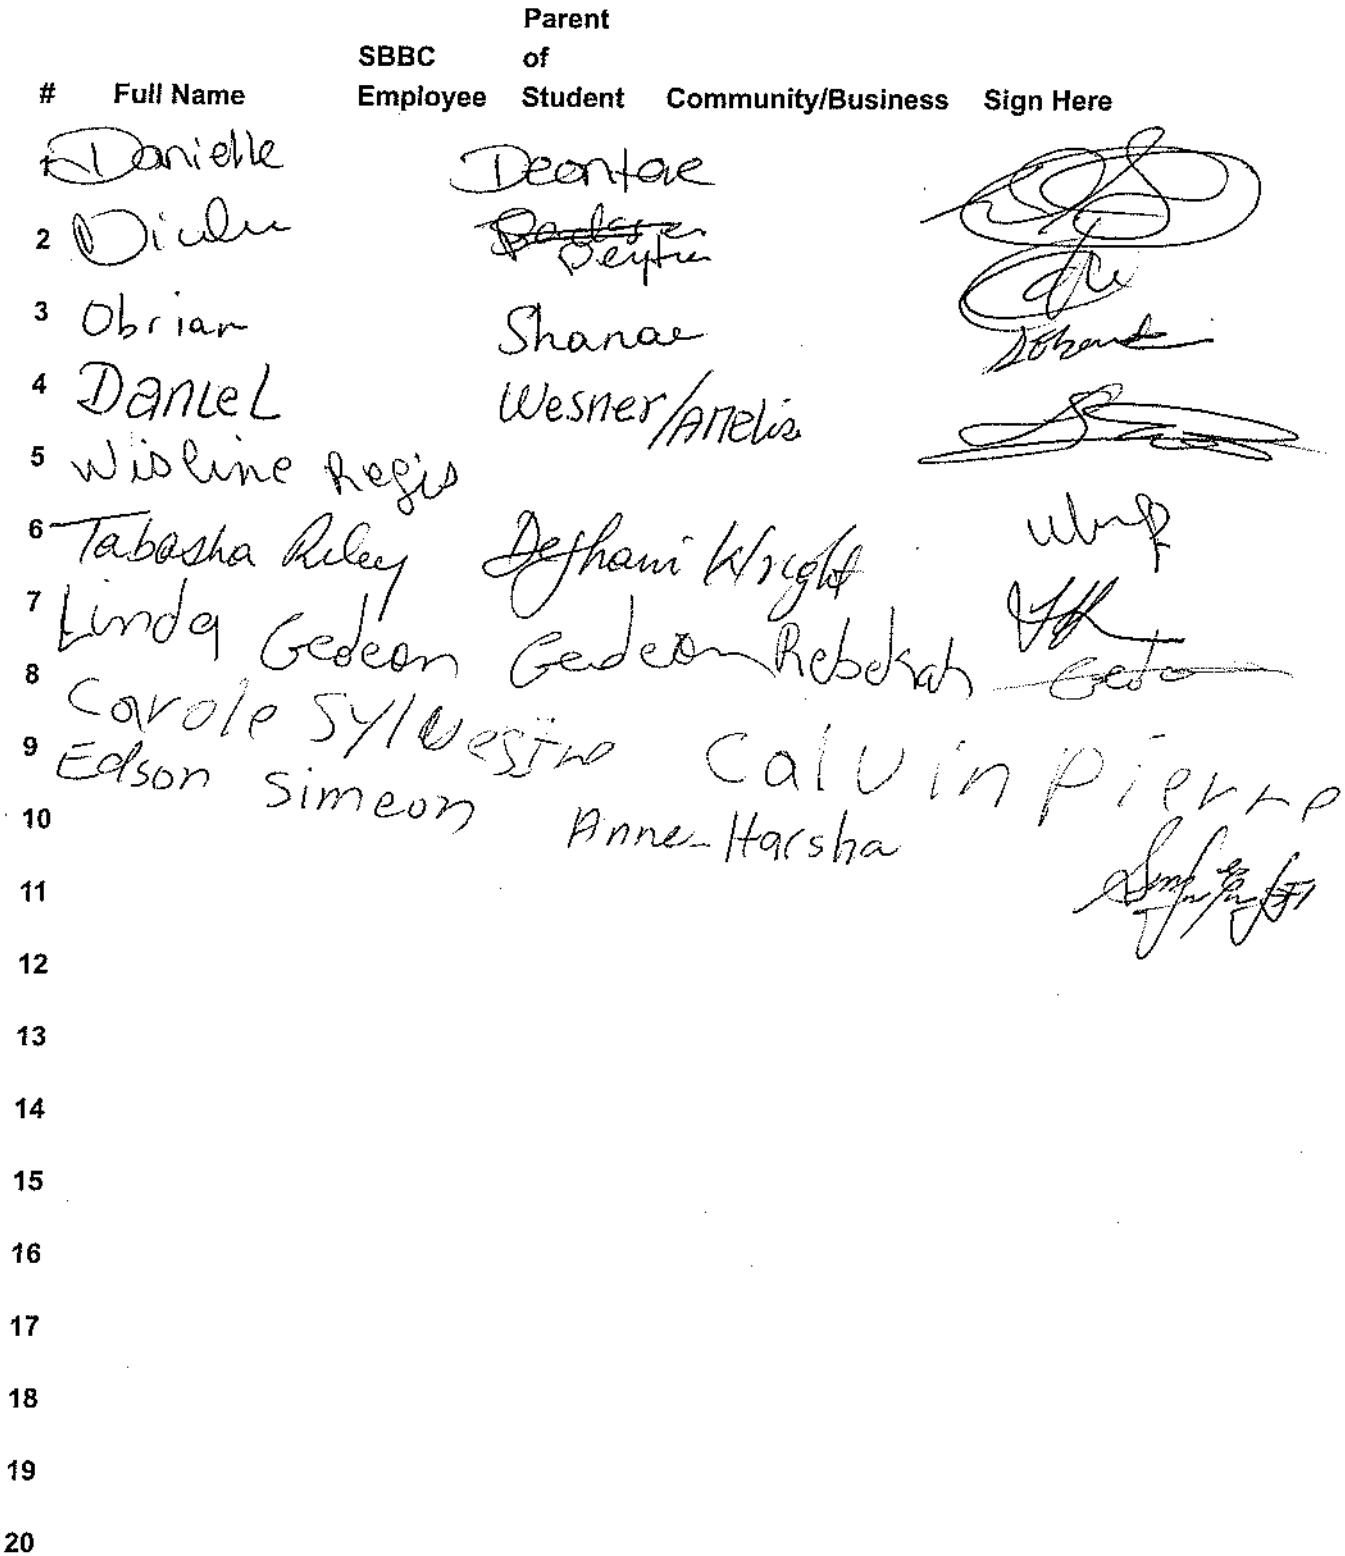 Parent
SBBC of
# Full Name Employee Student Community/Business Sign Here
Danielle Deontae
2
3 Obrian Shanae
4 Daniel Wesner/Amelia
5 Wisline Regis
6 Tabasha Riley Dejhani Wright
7 Linda Gedeon Gedeon Rebekah
8 Carole Sylvestre Calvin Pierre
9 Edson Simeon Anne-Harsha
10
11
12
13
14
15
16
17
18
19
20